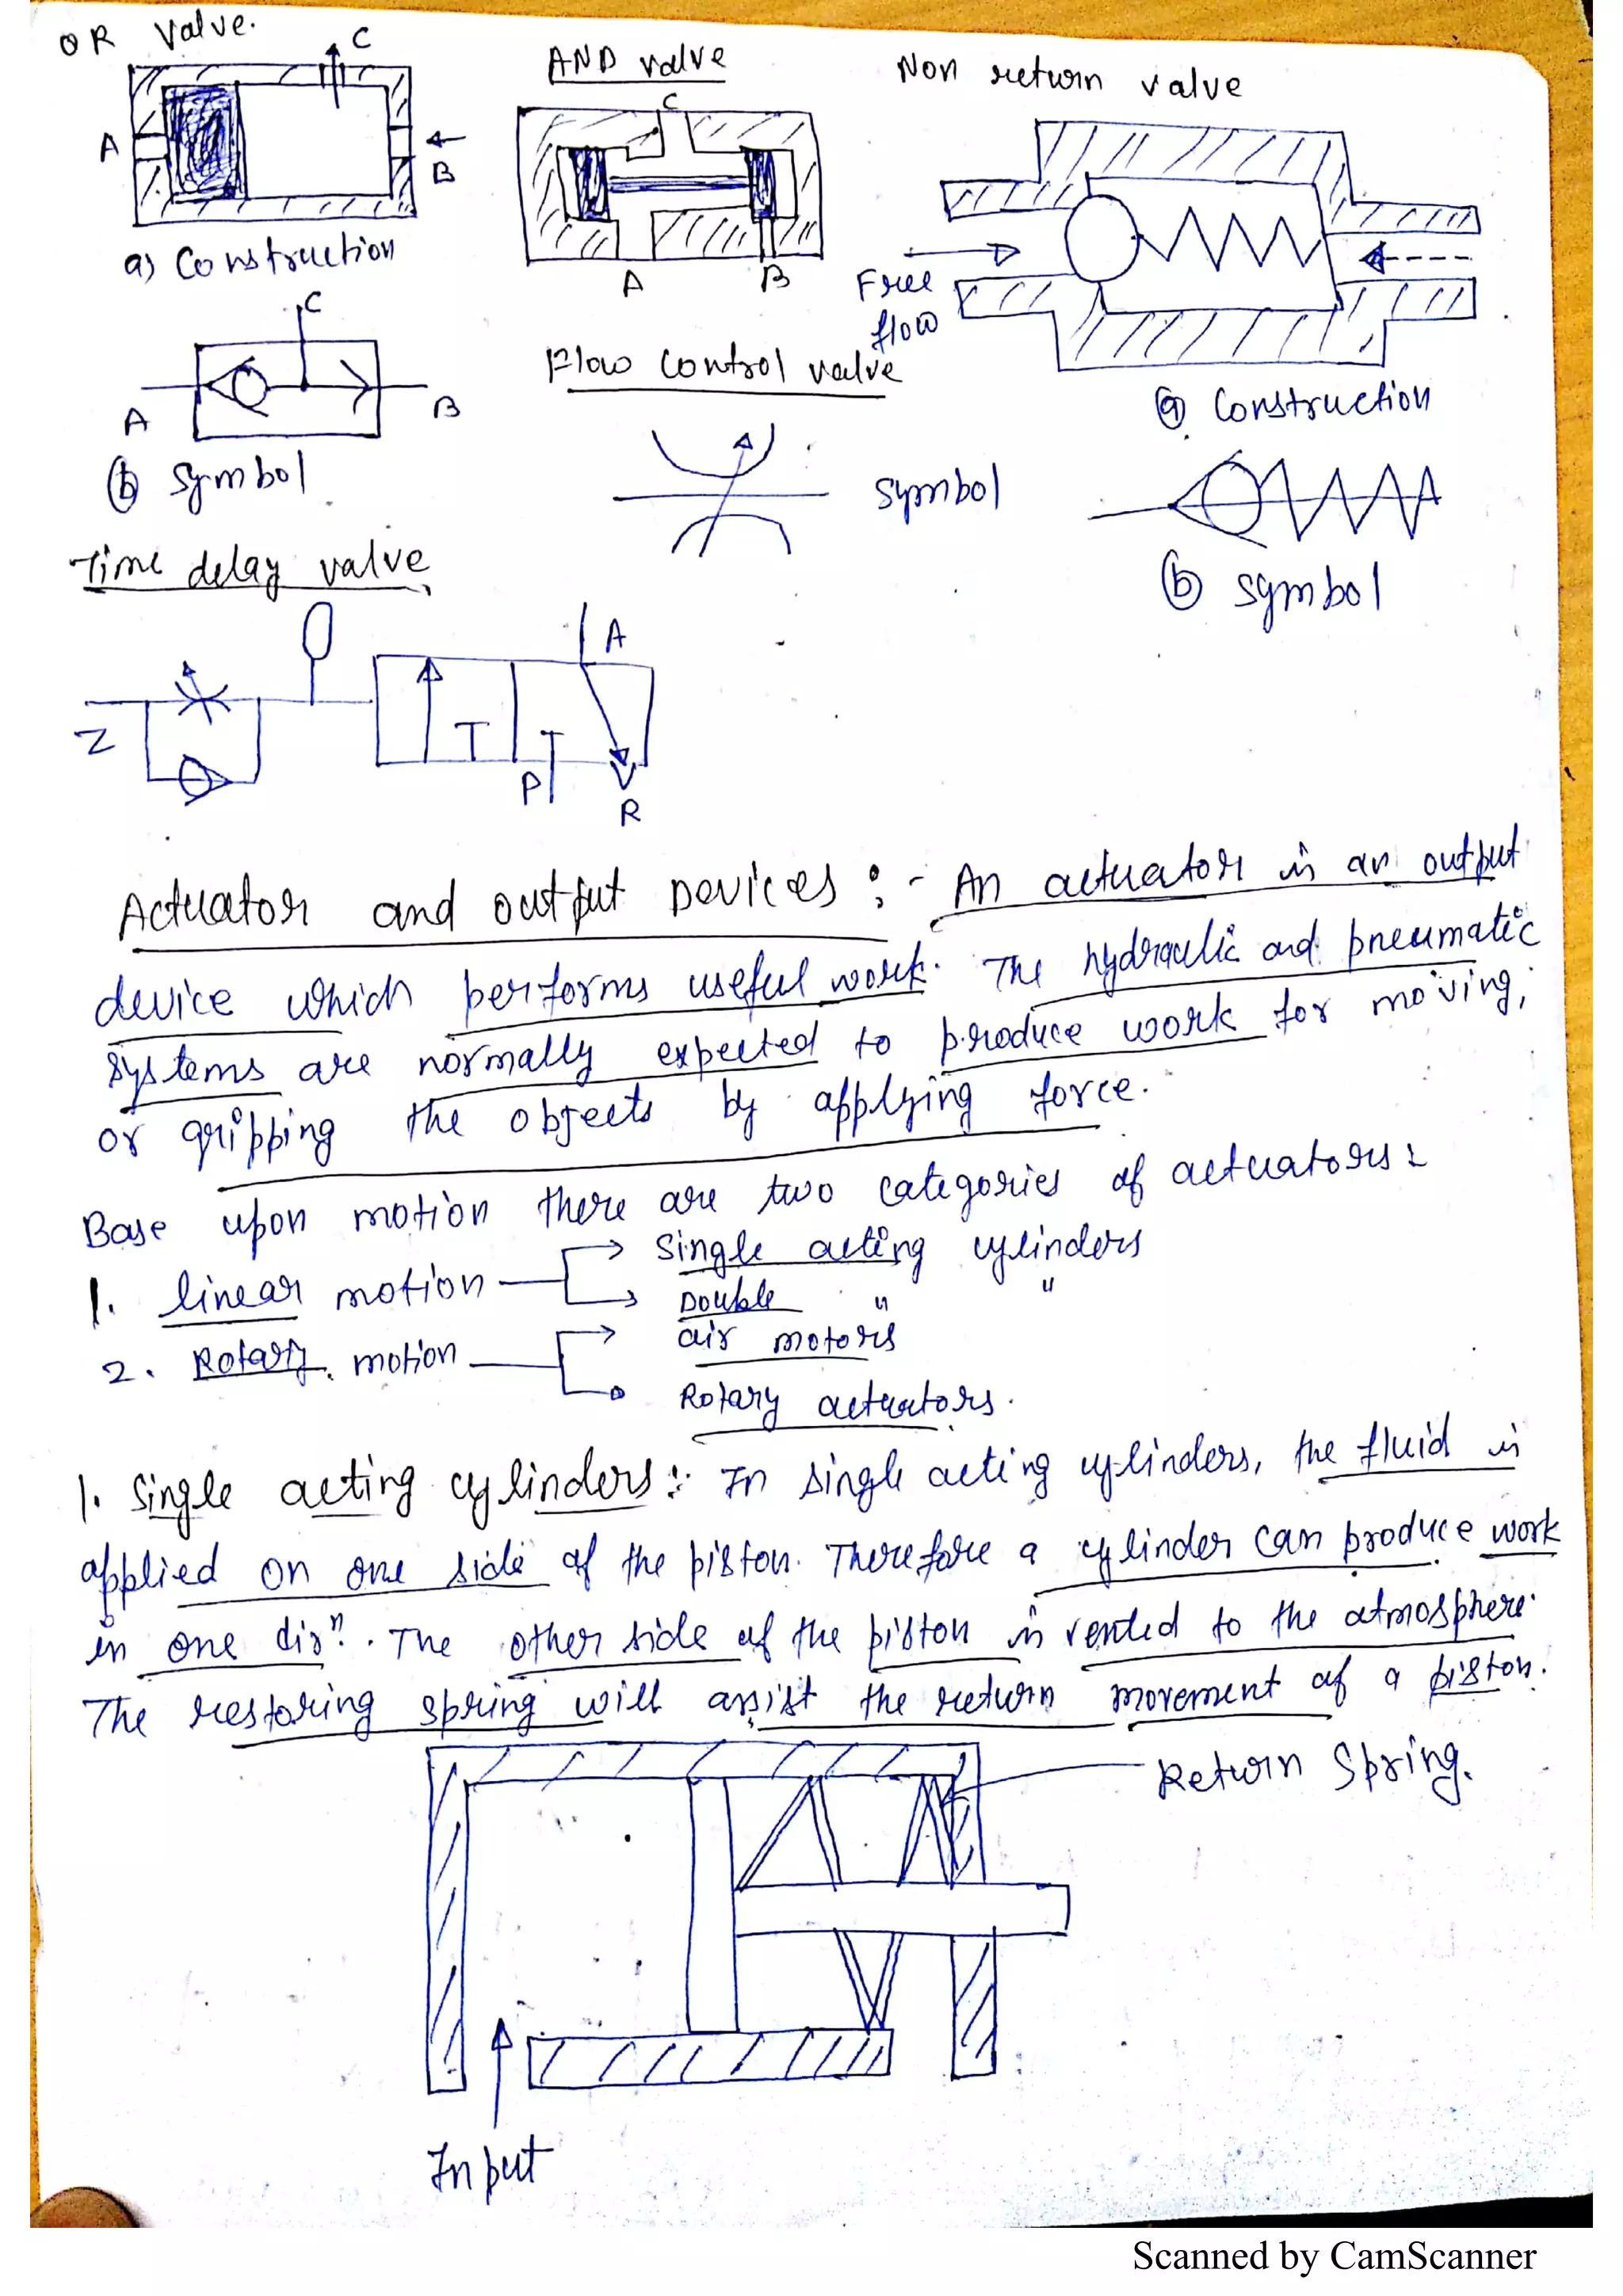 OR Valve.
C
A
B
a) Construction
C
A
B
(b) Symbol
AND valve
C
A
B
Non return valve
Free
flow
(a) Construction
(b) symbol
Flow control valve
symbol
Time delay valve
Z
A
P
R
Actuator and output Devices :- An actuator is an output
device which performs useful work. The hydraulic and pneumatic
systems are normally expected to produce work for moving,
or gripping the objects by applying force.
Base upon motion there are two categories of actuators:
1. linear motion → Single acting cylinders
→ Double " "
2. Rotary motion → air motors
→ Rotary actuators.
1. Single acting cylinders:- In single acting cylinders, the fluid is
applied on one side of the piston. Therefore a cylinder can produce work
in one dirⁿ. The other side of the piston is vented to the atmosphere.
The restoring spring will assist the return movement of a piston.
Return Spring.
Input
Scanned by CamScanner